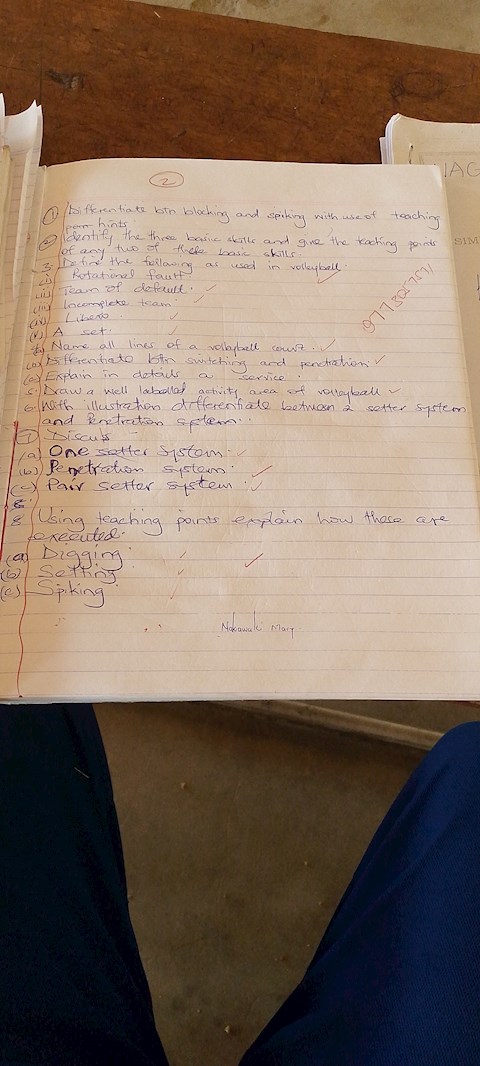 2
① Differentiate btn blocking and spiking with use of teaching
hints.
② Identify the three basic skills and give the teaching points
of any two of these basic skills
3. Define the following as used in volleyball
(i) Rotational fault
(ii) Team of default.
(iii) Incomplete team.
(iv) Libero.
(v) A set.
Name all lines of a volleyball court.
Differentiate btn switching and penetration;
(c) Explain in details a service.
5. Draw a well labelled activity area of volleyball
6. With illustration differentiate between 2 setter system
and Penetration system.
⑦ Discuss
(a) One setter system.
(b) Penetration system.
(c) Pair setter system.
8. Using teaching points explain how these are
executed.
(a) Digging
(b) Setting
(c) Spiking
Mary
IAG
SIM